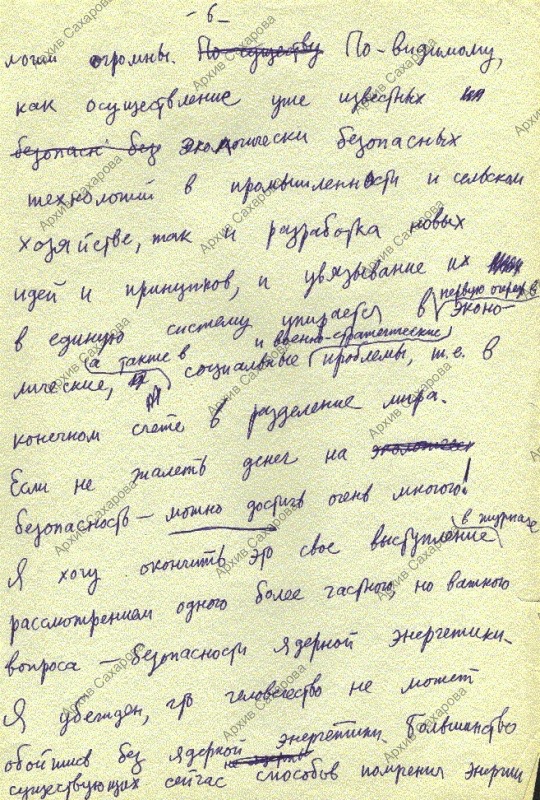 - 6 -
логии огромны. По существу По-видимому,
как осуществление уже известных
безопасн без экологически безопасных
технологий в промышленности и сельском
хозяйстве, так и разработка новых
идей и принципов, и увязывание их
в единую систему упирается в первую очередь в эконо-
мические, а также в социальные и военно-стратегические проблемы, т.е. в
конечном счете в разделение мира.
Если не жалеть денег на экологическ
безопасность – можно достичь очень многого!
Я хочу окончить это свое выступление в журнале
рассмотрением одного более частного, но важного
вопроса – безопасности ядерной энергетики.
Я убежден, что человечество не может
обойтись без ядерной энергетики. Большинство
существующих сейчас способов получения энергии
Архив Сахарова